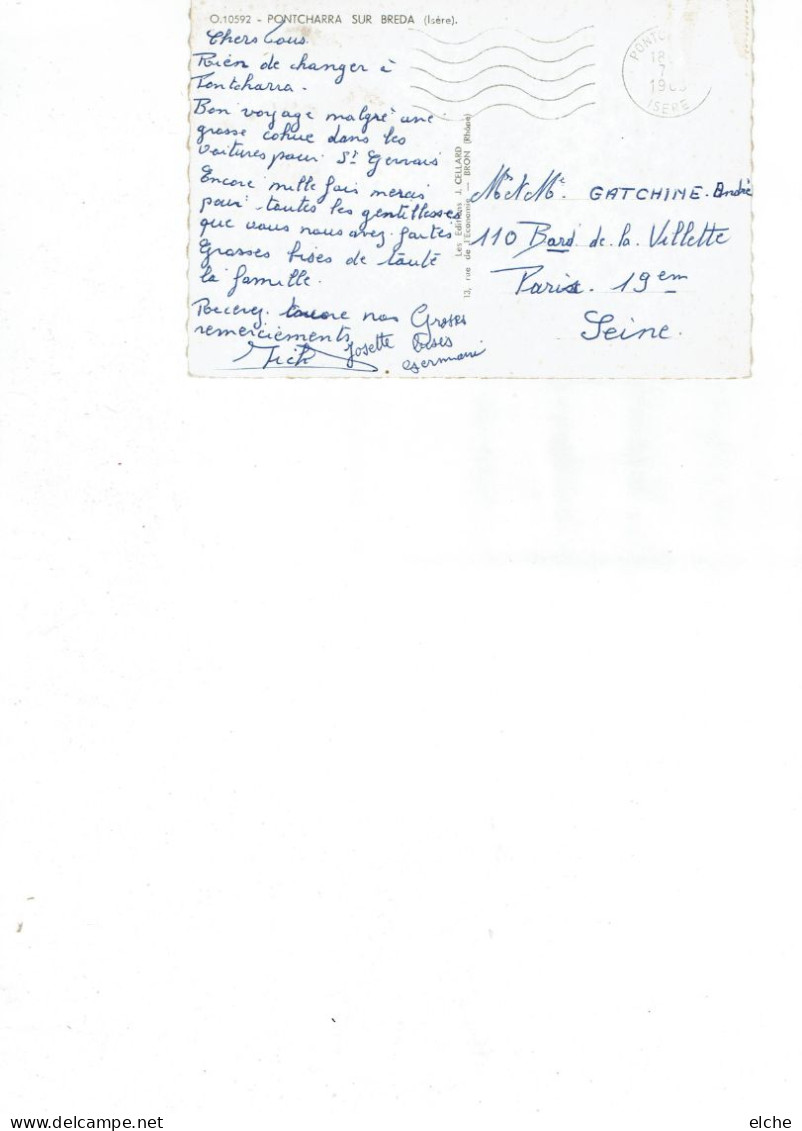 O.10592 - PONTCHARRA SUR BREDA (Isère).
Chers Tous.
Rien de changer à
Pontcharra.
Bon voyage malgré une
grosse cohue dans les
voitures pour St Gervais
Encore mille fois mercis
pour toutes les gentillesses
que vous nous avez faites.
Grosses bises de toute
la famille.
Recevez encore nos
remerciements
Josette
Groses
Bises
Germaine
Les Editions J. CELLARD
13, rue de l'Economie — BRON (Rhône)
PONTC
18
7
19
ISERE
Mr & Me. GATCHINE. André
110 Bard de la Villette
Paris. 19em
Seine.
elche